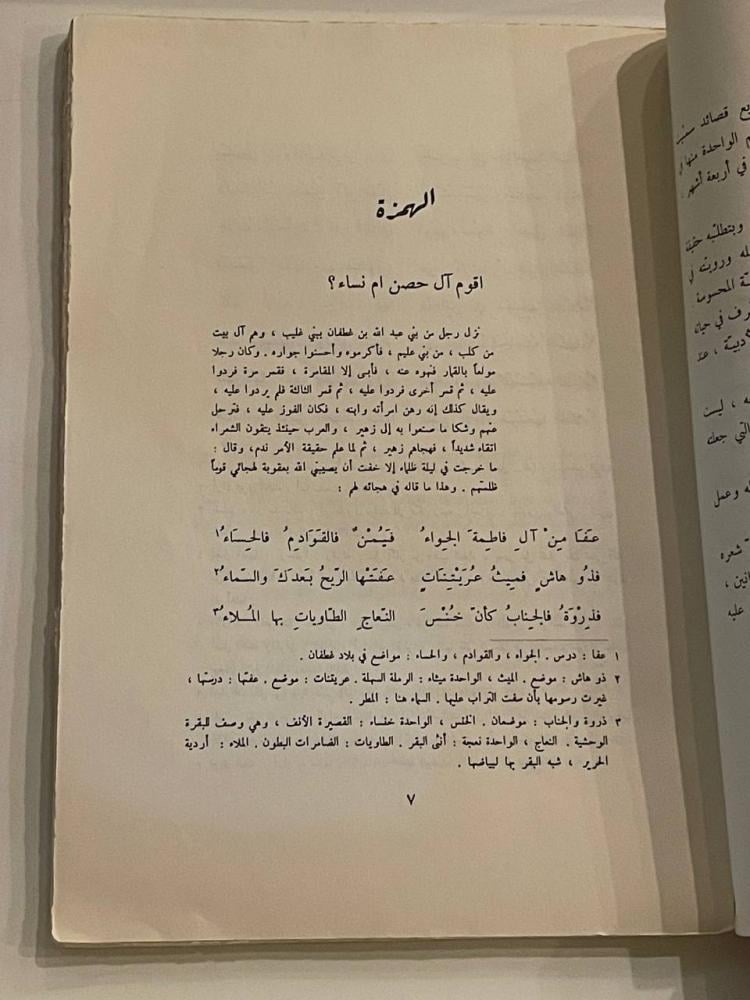 الهمزة
اقوم آل حصن ام نساء؟
نزل رجل من بني عبد الله بن غطفان ببني غليب ، وهم آل بيت
من كلب ، من بني عليم ، فأكرموه وأحسنوا جواره . وكان رجلا
مولعاً بالقمار فنهوه عنه ، فأبى إلا المقامرة ، فقمر مرة فردوا
عليه ، ثم قمر أخرى فردوا عليه ، ثم قمر الثالثة فلم يردوا عليه ،
ويقال كذلك إنه رهن امرأته وابنه ، فكان الفوز عليه ، فترحل
عنهم وشكا ما صنعوا به إلى زهير ، والعرب حينئذ يتقون الشعراء
اتقاء شديداً ، فهجاهم زهير ، ثم لما علم حقيقة الأمر ندم، وقال :
ما خرجت في ليلة ظلماء إلا خفت أن يصيبني الله بعقوبة لهجائي قوماً
ظلمتهم . وهذا ما قاله في هجائه لهم :
عَفَا مِنْ آلِ فاطِمةَ الجِواءُ فَيُمْنٌ فالقَوَادِمُ فالحِسَاءُ١
فذُو هاشٍ فمِيثُ عُرَيْتِنَاتٍ عَفَتْها الرّيحُ بَعدَكَ والسّماءُ٢
فذِرْوَةُ فالجِنابُ كأنّ خُنْسَ النّعاجِ الطّاوِياتِ بها المُلاءُ٣
١ عفا : درس . الجواء ، والقوادم ، والحساء : مواضع في بلاد غطفان .
٢ ذو هاش : موضع . الميث ، الواحدة ميثاء : الرملة السهلة . عريتنات : موضع . عفتها : درستها ،
غيرت رسومها بأن سفت التراب عليها . السماء هنا : المطر .
٣ ذروة والجناب : موضعان . الخنس ، الواحدة خنساء : القصيرة الأنف ، وهي وصف للبقرة
الوحشية . النعاج ، الواحدة نعجة : أنثى البقر . الطاويات : الضامرات البطون . الملاء : أردية
الحرير ، شبه البقر بها لبياضها .
٧
قصائد
الواحدة منها
في أربعة أشهر
ويتطلبه
ورويته في
المحسومة
في
، ليست
التي جعل
وعمل
شعره
عليه